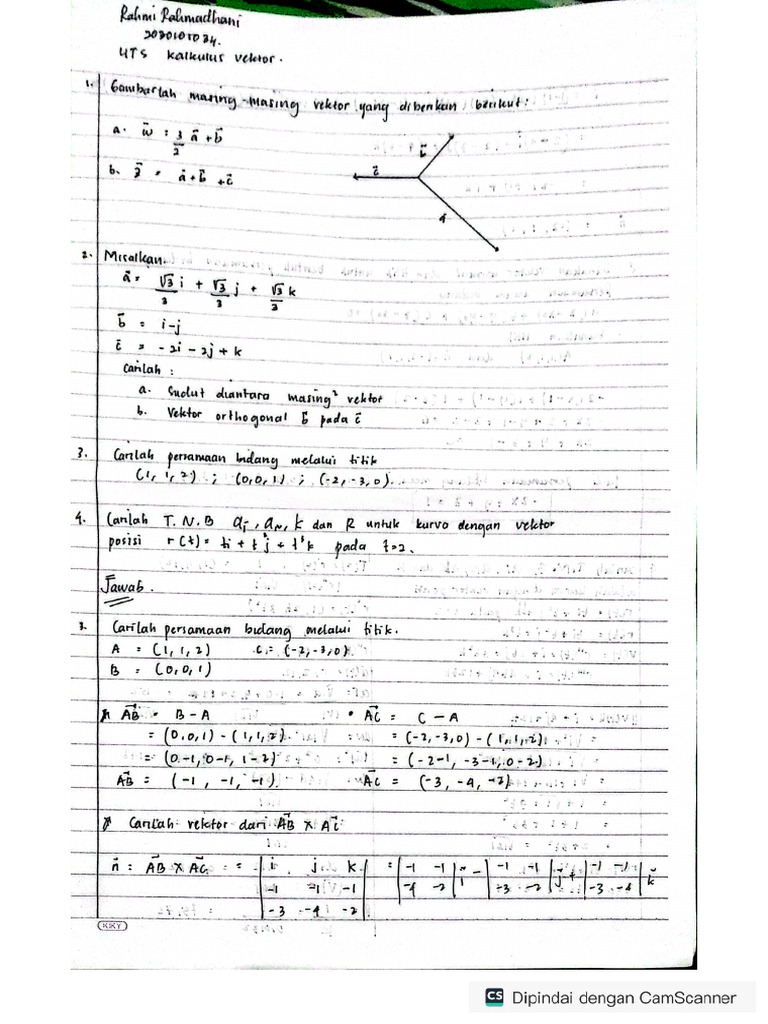 Rahmi Rahmadhani
2020101024.
UTS Kalkulus vektor.
1. Gambarlah masing-masing vektor yang diberikan berikut:
a. w⃗ = 3/2 a⃗ + b⃗
b. z⃗ = a⃗ + b⃗ + c⃗
b⃗
c⃗
a⃗
2. Misalkan.
a⃗ = √3/3 i + √3/3 j + √3/3 k
b⃗ = i-j
c⃗ = -2i - 2j + k
carilah :
a. Sudut diantara masing² vektor
b. Vektor orthogonal b⃗ pada c⃗
3. Carilah persamaan bidang melalui titik
(1, 1, 2) ; (0,0,1) ; (-2,-3,0).
4. Carilah T.N.B a_T, a_N, k dan R untuk kurvo dengan vektor
posisi r(t) = ti + t²j + t³k pada t=2.
Jawab.
3. Carilah persamaan bidang melalui titik.
A = (1, 1, 2) C = (-2,-3,0)
B = (0,0,1)
AB⃗ = B - A • AC⃗ = C - A
= (0,0,1) - (1,1,2). = (-2,-3,0) - (1,1,2)
= (0-1, 0-1, 1-2) = (-2-1, -3-1, 0-2)
AB⃗ = (-1, -1, -1). AC⃗ = (-3, -4, -2)
Carilah vektor dari AB⃗ x AC⃗
n⃗ = AB⃗ x AC⃗ = = | i j k | = | -1 -1 | i - | -1 -1 | j + | -1 -1 | k⃗
| -1 -1 -1 | | -4 -2 | | -3 -2 | | -3 -4 |
| -3 -4 -2 |
KKY
CS Dipindai dengan CamScanner